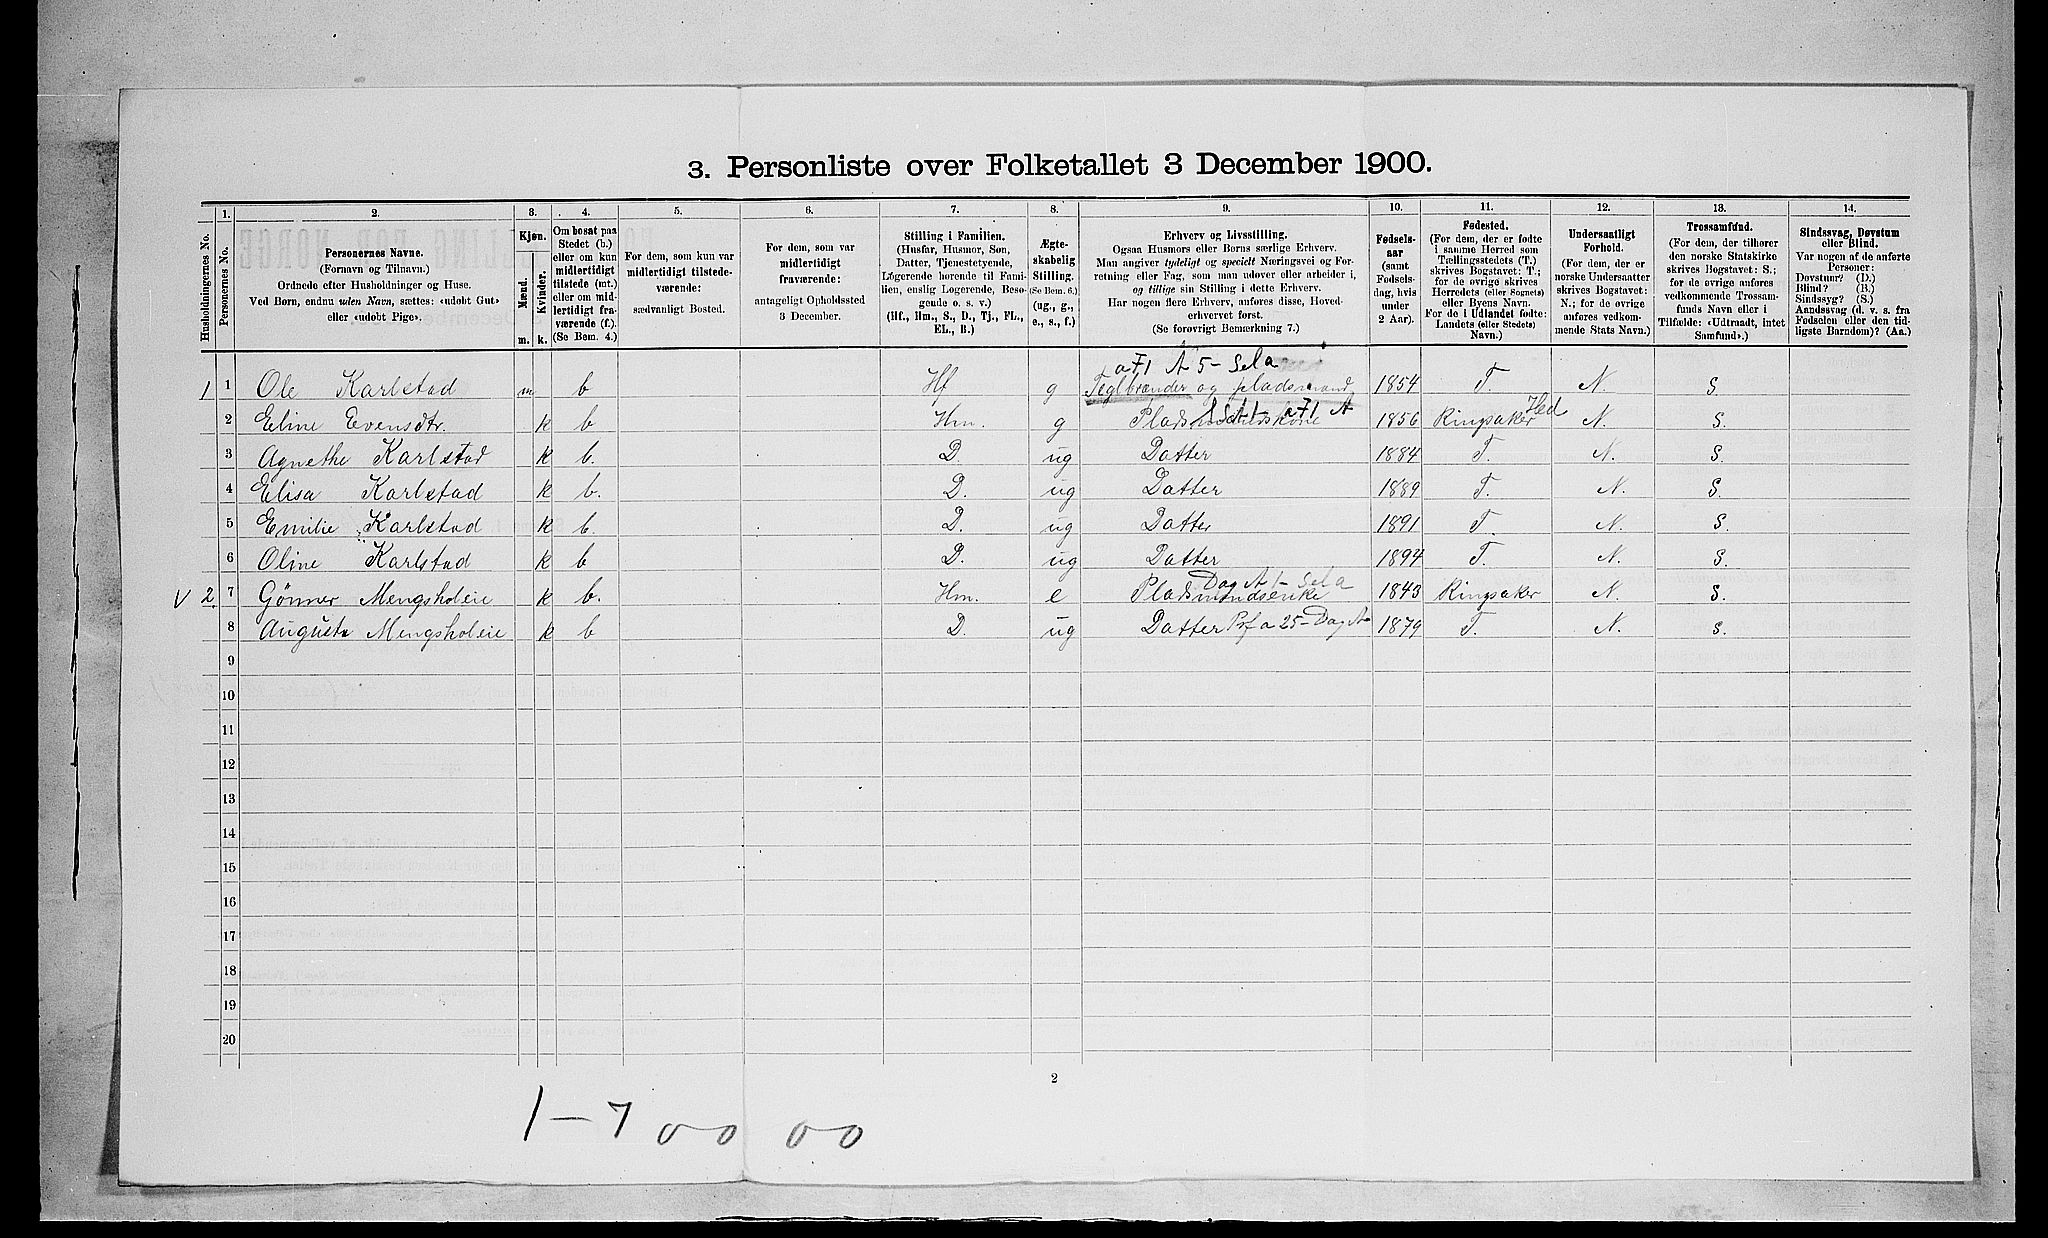 3. Personliste over Folketallet 3 December 1900.
1. 2. 3. 4. 5. 6. 7. 8. 9. 10. 11. 12. 13. 14.
Husholdningernes No.
Personernes No.
Personernes Navne.
(Fornavn og Tilnavn.)
Ordnede efter Husholdninger og Huse.
Ved Børn, endnu uden Navn, sættes: «udøbt Gut»
eller «udøbt Pige».
Kjøn.
Mænd.
Kvinder.
m. k.
Om bosat paa
Stedet (b.)
eller om kun
midlertidigt
tilstede (mt.)
eller om mid-
lertidigt fra-
værende (f.)
(Se Bem. 4.)
For dem, som kun var
midlertidigt tilstede-
værende:
sædvanligt Bosted.
For dem, som var
midlertidigt
fraværende:
antageligt Opholdssted
3 December.
Stilling i Familien.
(Husfar, Husmor, Søn,
Datter, Tjenestetyende,
Logerende hørende til Fami-
lien, enslig Logerende, Besø-
gende o. s. v.)
(Hf., Hm., S., D., Tj., FL.,
EL., B.)
Ægte-
skabelig
Stilling.
(Se Bem. 6.)
(ug., g.,
e., s., f.)
Erhverv og Livsstilling.
Ogsaa Husmors eller Børns særlige Erhverv.
Man angiver tydeligt og specielt Næringsvei og For-
retning eller Fag, som man udøver eller arbeider i,
og tillige sin Stilling i dette Erhverv.
Har nogen flere Erhverv, anføres disse, Hoved-
erhvervet først.
(Se forøvrigt Bemærkning 7.)
Fødsels-
aar
(samt
Fødsels-
dag, hvis
under
2 Aar).
Fødested.
(For dem, der er fødte
i samme Herred som
Tællingsstedets (T.)
skrives Bogstavet: T.;
for de øvrige skrives
Herredets (eller Sognets)
eller Byens Navn.
For de i Udlandet fødte:
Landets (eller Stedets)
Navn.)
Undersaatligt
Forhold.
(For dem, der er
norske Undersaatter
skrives Bogstavet:
N.; for de øvrige
anføres vedkom-
mende Stats Navn.)
Trossamfund.
(For dem, der tilhører
den norske Statskirke
skrives Bogstavet: S.;
for de øvrige anføres
vedkommende Trossam-
funds Navn eller i
Tilfælde: «Udtraadt, intet
Samfund».)
Sindssvag, Døvstum
eller Blind.
Var nogen af de anførte
Personer:
Døvstum? (D.)
Blind? (B.)
Sindssyg? (S.)
Aandssvag (d. v. s. fra
Fødselen eller den tid-
ligste Barndom)? (Aa.)
aF1 A 5 - Sela
1 1 Ole Karlstad m b Hf g Teglbrænder og pladsmand 1854 T. N. S.
aF1 A Hed
2 Eline Evensdtr. k b Hm. g Pladsmandskone 1856 Ringsaker N. S.
3 Agnethe Karlstad k b. D. ug Datter 1884 T. N. S.
4 Elisa Karlstad k b. D. ug Datter 1889 T. N. S.
5 Emilie Karlstad k b. D. ug Datter 1891 T. N. S.
6 Oline Karlstad k b D. ug Datter 1894 T. N. S.
Dag A 1 - Sela
V 2. 7 Gönner Mengsholeie k b. Hm. e Pladsmandsenke 1843 Ringsaker N. S.
8 Augusta Mengsholeie k b D. ug Datter Psfa 25 - Dag A 1879 T. N. S.
9
10
11
12
13
14
15
16
17
18
19
20
2
1 - 7 00 00